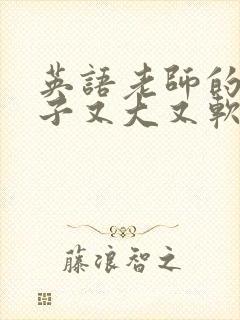 英語老師的
子又大又軟
藤浪智之